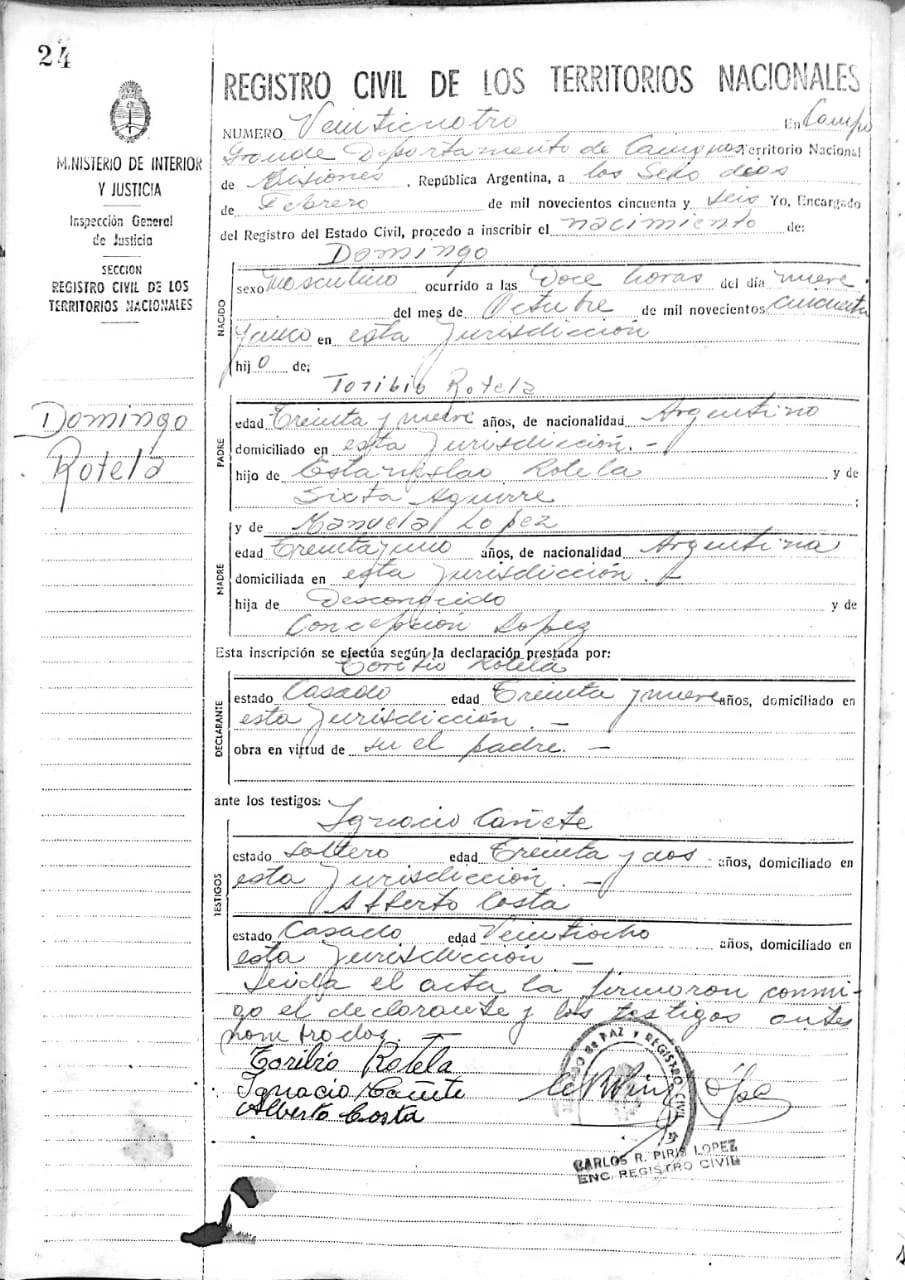 24
MINISTERIO DE INTERIOR
Y JUSTICIA
Inspección General
de Justicia
SECCION
REGISTRO CIVIL DE LOS
TERRITORIOS NACIONALES
Domingo
Rotela
REGISTRO CIVIL DE LOS TERRITORIOS NACIONALES
NUMERO Veinticuatro En Campo
Grande Departamento de Territorio Nacional
de Misiones, República Argentina, a los Seis días
de Febrero de mil novecientos cincuenta y seis Yo, Encargado
del Registro del Estado Civil, procedo a inscribir el nacimiento de:
Domingo
NACIDO
sexo Masculino ocurrido a las Doce horas del día nueve
del mes de Octubre de mil novecientos cincuenta
y cinco en esta Jurisdicción
hijo de;
Toribio Rotela
PADRE
edad Treinta y nueve años, de nacionalidad Argentino
domiciliado en esta Jurisdicción. -
hijo de Estanislao Rotela y de
Sixta Aguirre ;
y de Manuela Lopez
MADRE
edad Treinta y uno años, de nacionalidad Argentina
domiciliada en esta Jurisdicción. -
hija de Desconocido y de
Concepción Lopez
Esta inscripción se efectúa según la declaración prestada por:
Toribio Rotela
DECLARANTE
estado Casado edad Treinta y nueve años, domiciliado en
esta Jurisdicción. -
obra en virtud de su el padre. -
ante los testigos:
Ignacio Cañete
TESTIGOS
estado Soltero edad Treinta y dos años, domiciliado en
esta Jurisdicción. -
Alberto Costa
estado Casado edad Veintiocho años, domiciliado en
esta Jurisdicción -
Leida el acta la firmaron conmi-
go el declarante y los testigos antes
nombrados.
Toribio Rotela
Ignacio Cañete
Alberto Costa
PAZ Y REGISTRO CIVIL
CARLOS R. PIRIS LOPEZ
ENC. REGISTRO CIVIL